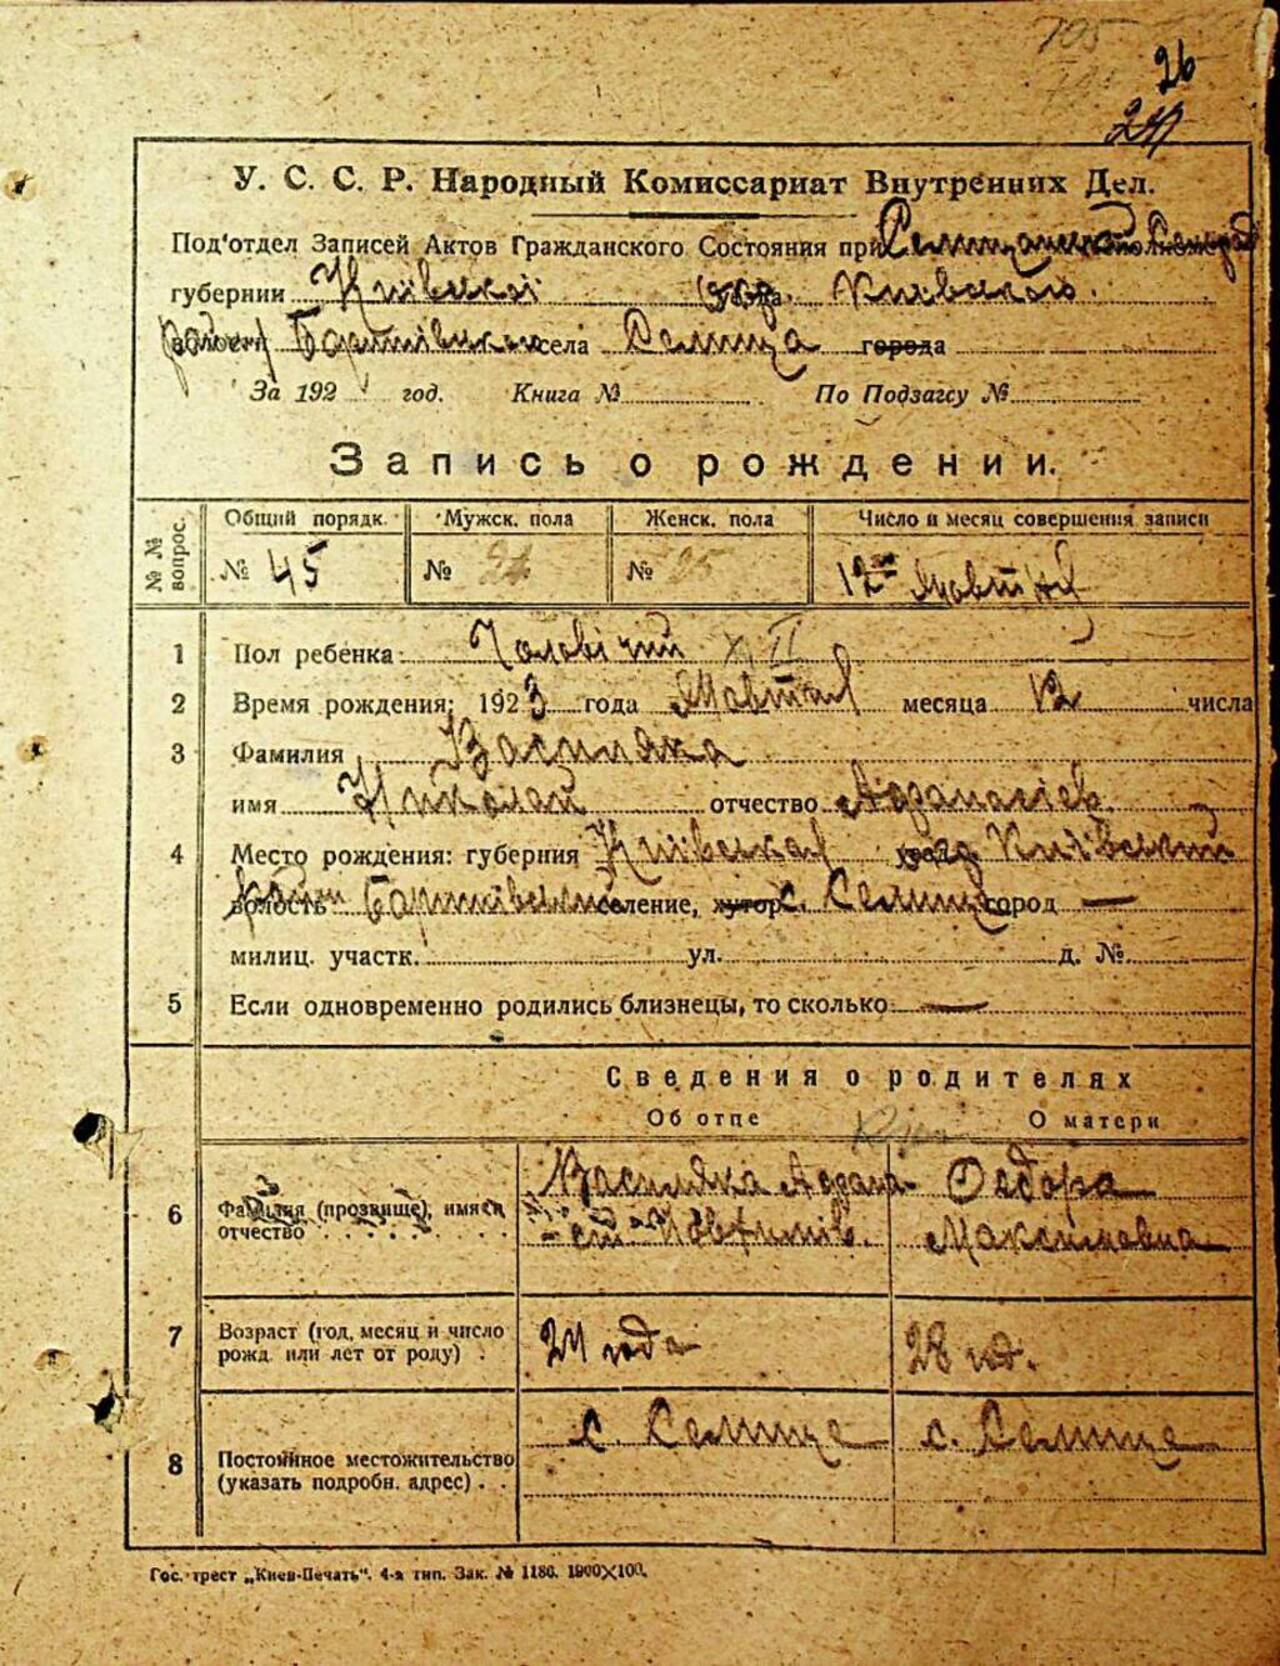 26
У. С. С. Р. Народный Комиссариат Внутренних Дел.
Под'отдел Записей Актов Гражданского Состояния при
губернии Київської Київського.
села Селище города
За 192 год. Книга № По Подзагсу №
Запись о рождении.
№№ вопрос. Общий порядк. Мужск. пола Женск. пола Число и месяц совершения записи
№ 45 № 24 № 25 12 Жовтня
1 Пол ребенка: Чоловічий
2 Время рождения: 1923 года Жовтня месяца 12 числа
3 Фамилия Василяка
имя Николай отчество Афанасієв.
4 Место рождения: губерния Київська Київський
волость селение, хутор с. Селище город —
милиц. участк. ул. д. №
5 Если одновременно родились близнецы, то сколько —
Сведения о родителях
Об отце О матери
6 Фамилия (прозвище), имя и отчество Василяка Афана- Федора
Максимовна
7 Возраст (год, месяц и число рожд. или лет от роду) 24 года 28 год.
8 Постоянное местожительство (указать подробн. адрес) с. Селище с. Селище
Гос. трест „Киев-Печать". 4-я тип. Зак. № 1186. 1900×100.